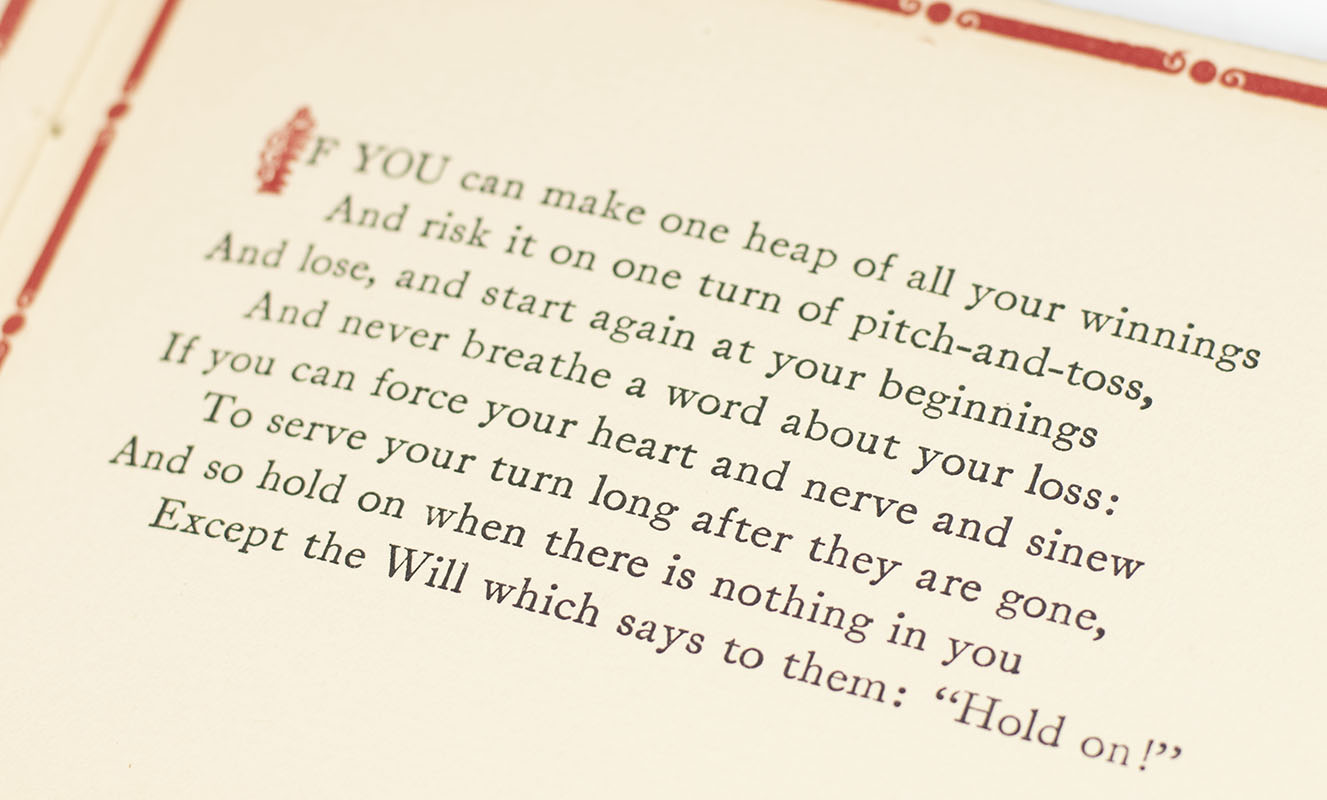 IF YOU can make one heap of all your winnings
And risk it on one turn of pitch-and-toss,
And lose, and start again at your beginnings
And never breathe a word about your loss:
If you can force your heart and nerve and sinew
To serve your turn long after they are gone,
And so hold on when there is nothing in you
Except the Will which says to them: “Hold on!”